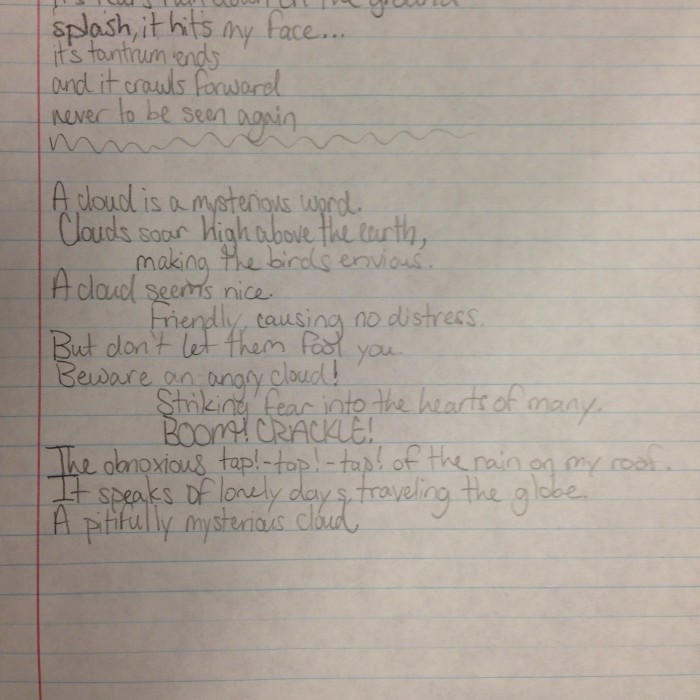 it's tears run down on the ground
splash, it hits my face...
it's tantrum ends
and it crawls forward
never to be seen again
A cloud is a mysterious word.
Clouds soar high above the earth,
making the birds envious.
A cloud seems nice.
Friendly, causing no distress.
But don't let them fool you.
Beware an angry cloud!
Striking fear into the hearts of many.
BOOM! CRACKLE!
The obnoxious tap!-tap!-tap! of the rain on my roof.
It speaks of lonely days, traveling the globe.
A pitifully mysterious cloud